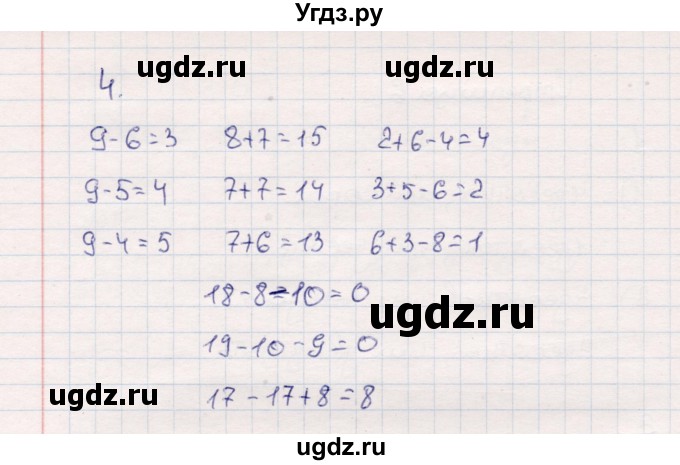 Угдз.ру
ugdz.ru ugdz.ru
4.
9-6=3 8+7=15 2+6-4=4
9-5=4 7+7=14 3+5-6=2
9-4=5 7+6=13 6+3-8=1
18-8-10=0
ugdz.ru
19-10-9=0
17-17+8=8
ugdz.ru ugdz.ru
ugdz.ru